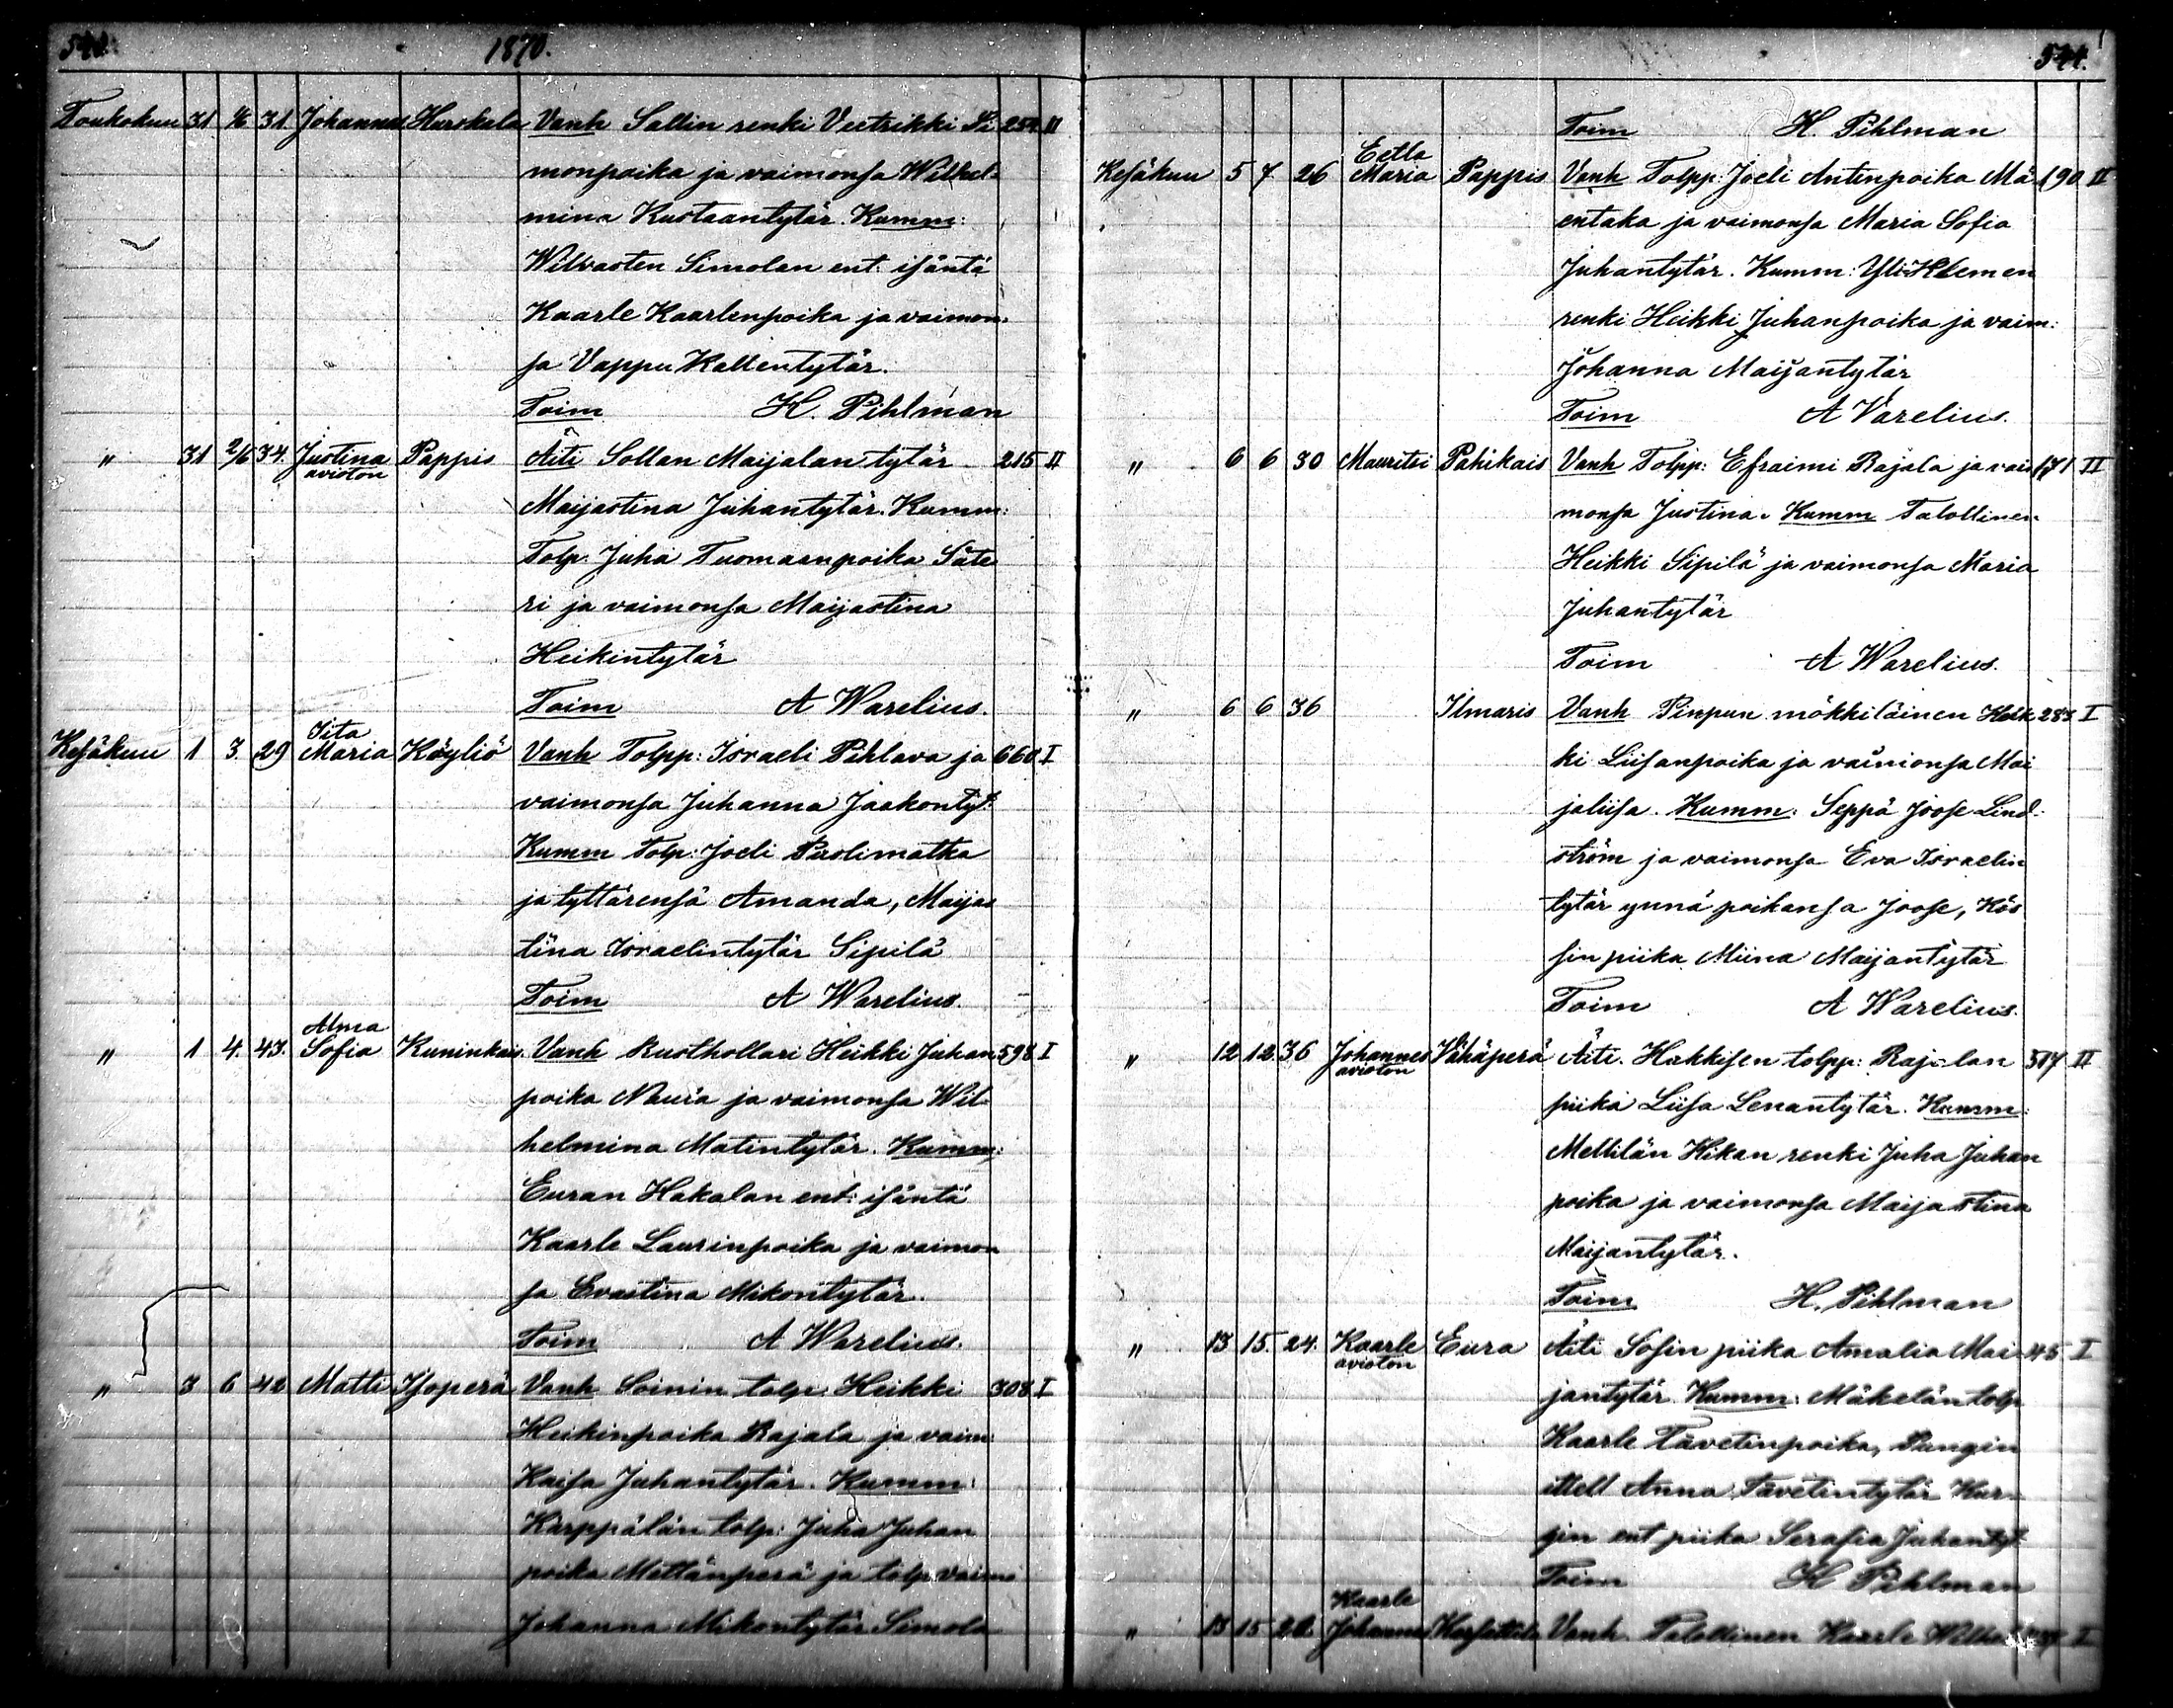 540. 1870.
Toukokuu 31 1/6 31 Johannes Harokala Vanh Sallin renki Veetrikki Si 254 II
monpoika ja vaimonsa Wilhel-
mina Kustaantytär. Kumm:
Wilvasten Simolan ent: isäntä
Kaarle Kaarlenpoika ja vaimon-
sa Vappu Kallentytär.
Toim H. Pihlman
" 31 2/6 34. Justina Pappis Äiti Sollan Maijalan tytär 215 II
avioton
Maijastina Juhantytär. Kumm:
Tolp: Juha Tuomaanpoika Säte
ri ja vaimonsa Maijastina
Heikintytär
Toim A Warelius.
Iita
Kesäkuu 1 3. 29 Maria Köyliö Vanh Tolpp: Israeli Pihlava ja 660 I
vaimonsa Juhanna Jaakontyt.
Kumm Tolp: Joeli Puolimatka
ja tyttärensä Amanda, Maijas
tina Israelintytär Sipilä
Toim A Warelius.
Alma
" 1 4. 43. Sofia Kuninkais. Vanh Rusthollari Heikki Juhan 598 I
poika Naura ja vaimonsa Wil-
helmina Matintytär. Kumm:
Euran Hakalan ent: isäntä
Kaarle Laurinpoika ja vaimon
sa Evastina Mikontytär.
Toim A Warelius.
" 3 6 42 Matti Isoperä Vanh Soinin tolp. Heikki 308 I
Heikinpoika Rajala ja vaim:
Kaisa Juhantytär. Kumm:
Kärppälän tolp: Juha Juhan
poika Mettänperä ja tolp. vaimo
Johanna Mikontytär Simola
541.
Toim H. Pihlman
Eetla
Kesäkuu 5 7 26 Maria Pappis Vanh Tolpp: Joeli Antinpoika Mä 190 II
entaka ja vaimonsa Maria Sofia
Juhantytär. Kumm: Yli-Klemen
renki Heikki Juhanpoika ja vaim:
Johanna Maijantytär
Toim A Varelius.
" 6 6 30 Mauritsi Pahikais Vanh Tolpp: Efraimi Rajala ja vai 171 II
monsa Justina. Kumm Talollinen
Heikki Sipilä ja vaimonsa Maria
Juhantytär
Toim A Warelius.
" 6 6 36 Ilmaris Vanh Pinpun mökkiläinen Heik 283 I
ki Liisanpoika ja vaimonsa Mai
jaliisa. Kumm: Seppä Joose Lind-
ström ja vaimonsa Eva Israelin
tytär ynnä poikansa Joose, Kös
sin piika Miina Maijantytär
Toim A Warelius.
" 12 12. 36 Johannes Vähäperä Äiti. Hakkisen tolpp: Rajalan 517 II
avioton
piika Liisa Lenantytär. Kumm:
Mellilän Hikan renki Juha Juhan
poika ja vaimonsa Maija stina
Maijantytär.
Toim H. Pihlman
" 13 15. 24. Kaarle Eura Äiti Sofin piika Amalia Mai- 45 I
avioton
jantytär. Kumm: Mäkelän tolp
Kaarle Tavetinpoika, Pungin
itsell Anna Tavetintytär Kur-
gin ent piika Serafia Juhantyt
Toim H Pihlman
Kaarle
" 13 15 Johannes Vanh. Talollinen Kaarle I